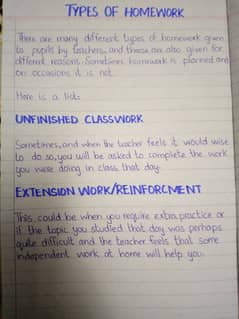 TYPES OF HOMEWORK
There are many different types of homework given
to pupils by teachers, and these are also given for
different reasons. Sometimes homework is planned and
on occasions it is not.
Here is a list:
UNFINISHED CLASSWORK
Sometimes, and when the teacher feels it would wise
to do so, you will be asked to complete the work
you were doing in class that day.
EXTENSION WORK/REINFORCMENT
This could be when you require extra practice or
if the topic you studied that day was perhaps
quite difficult and the teacher feels that some
independent work at home will help you.